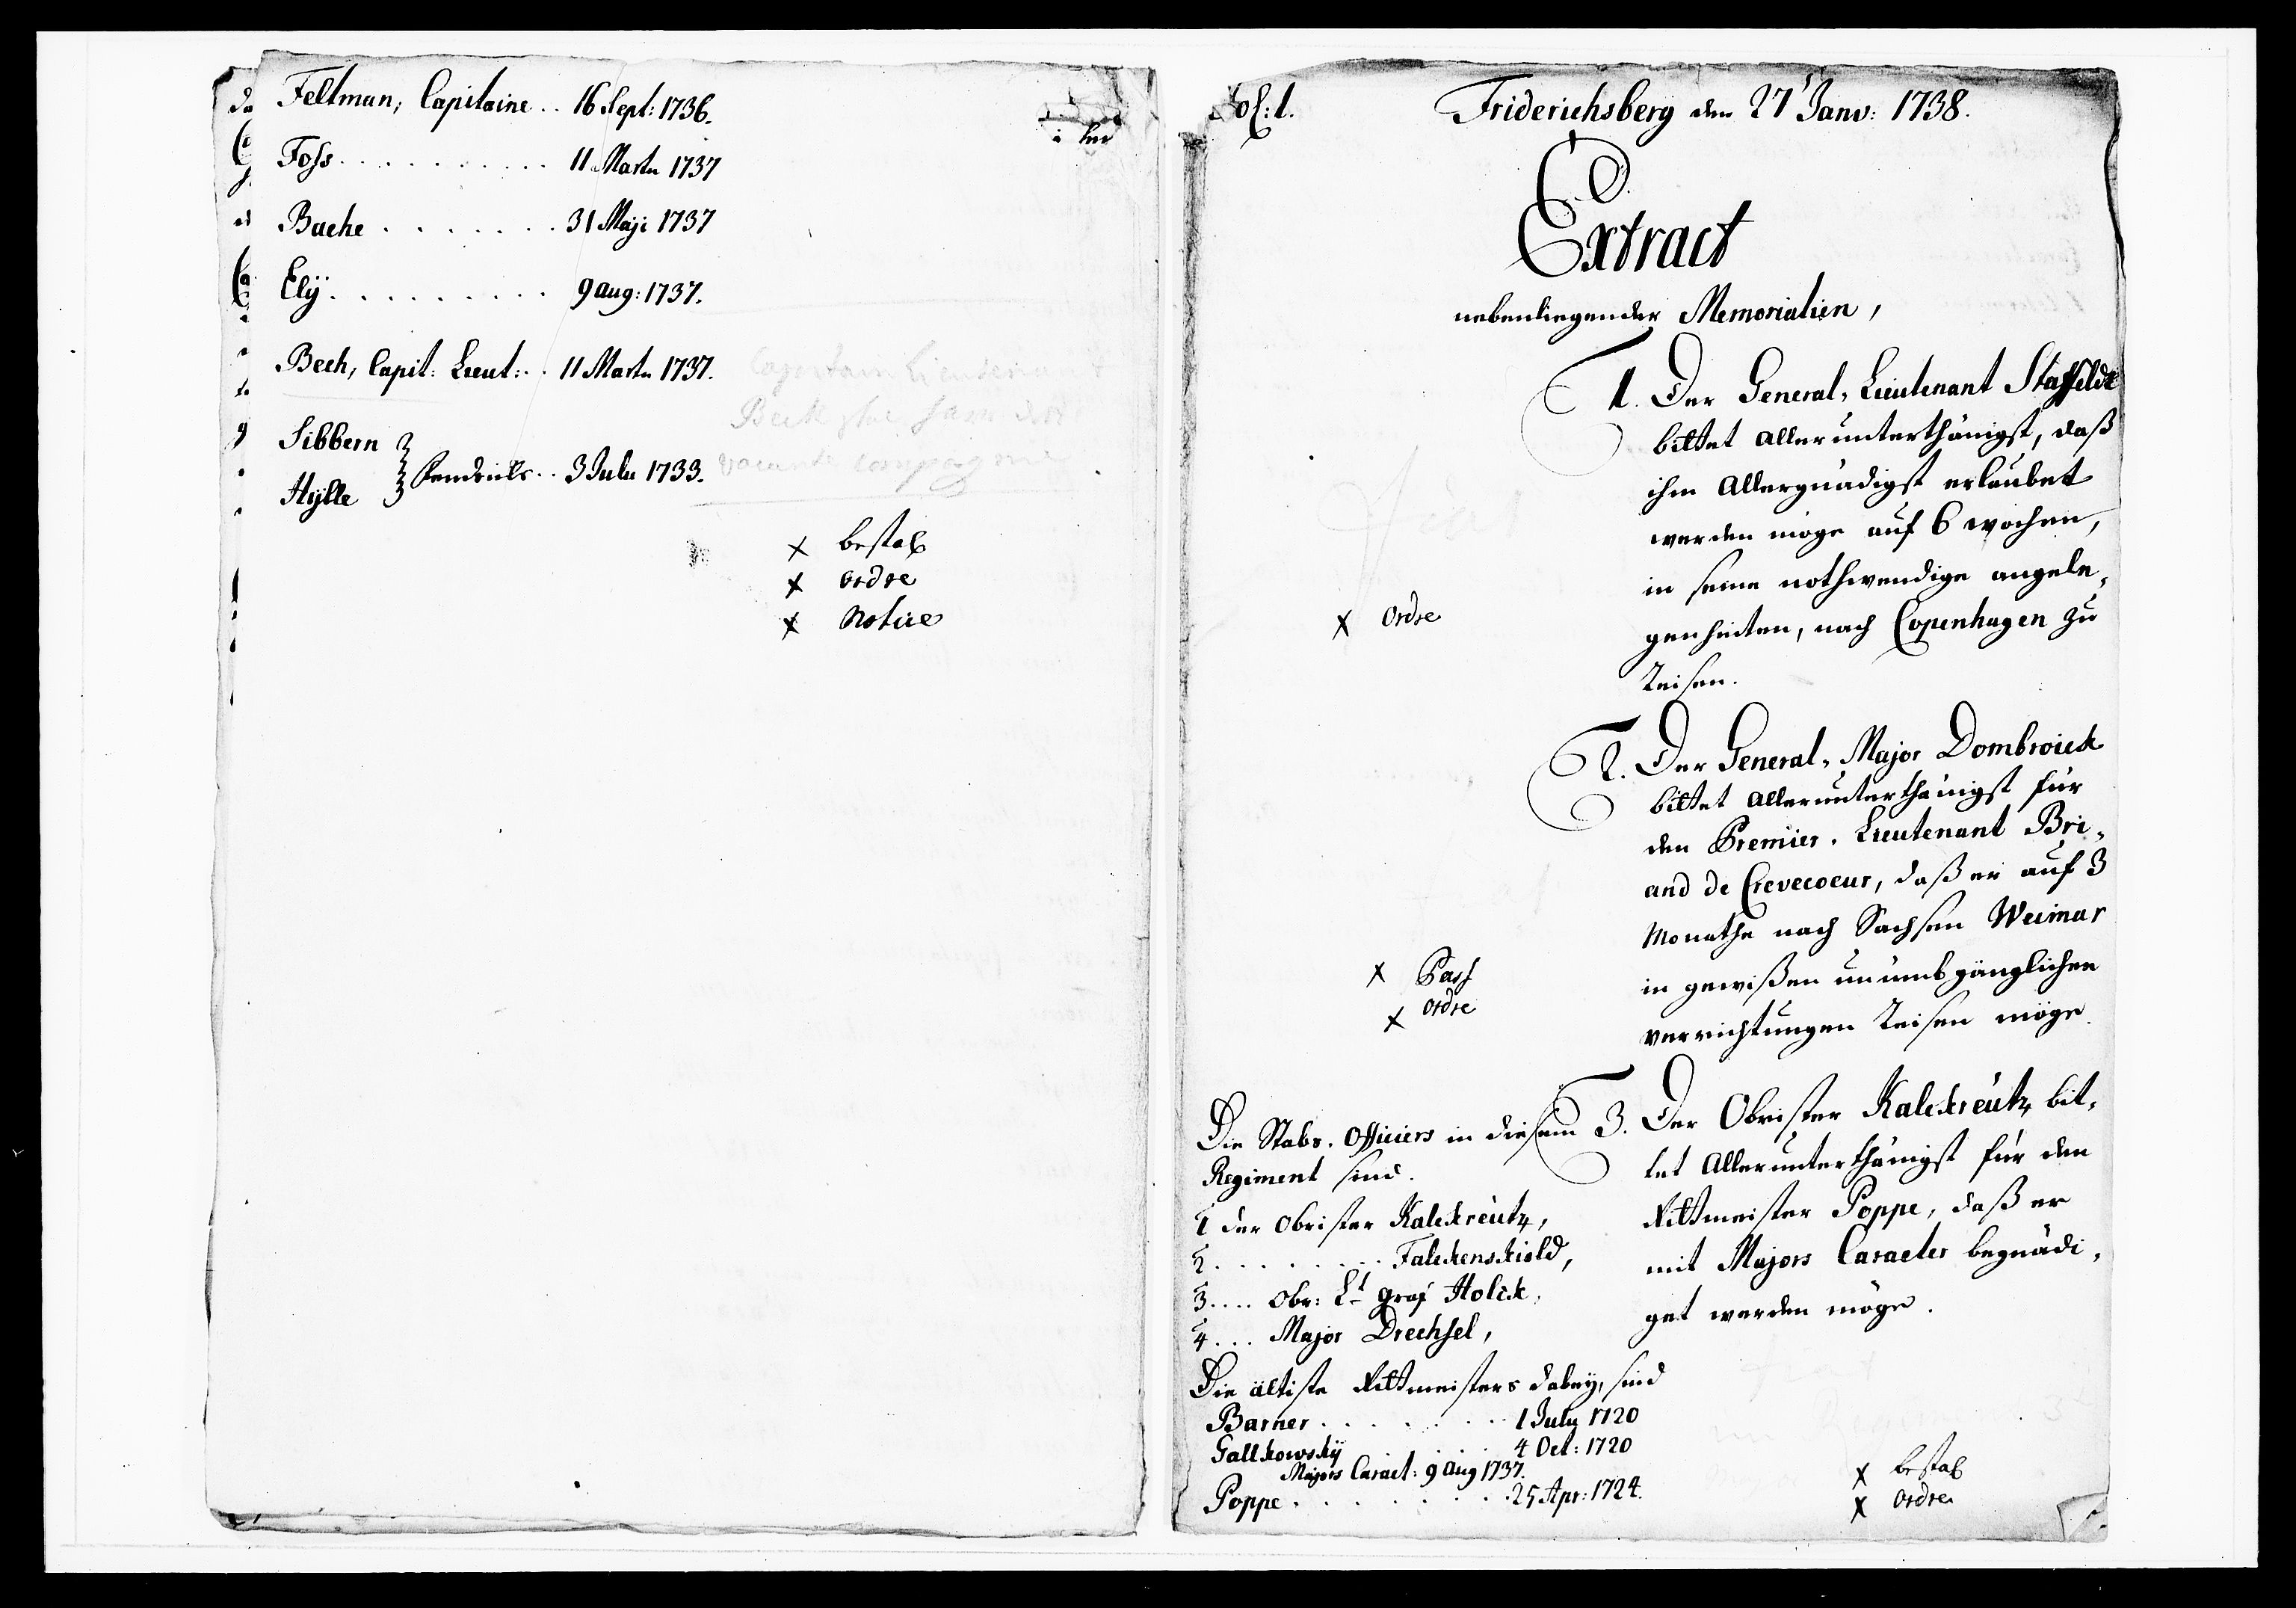 Feltman, Capitaine .. 16 Sept: 1736.
Foss . . . . . . . . . . 11 Marti 1737
Bache . . . . . . . 31 Maji 1737
Elÿ . . . . . . . . . 9 aug: 1737.
Bech, Capit: Lieut: .. 11 Marti 1737.
Sibbern
Hÿlle
Fendrichs .. 3 Julii 1733.
Capitain Lieutena
Beck skal have den
vacante compagnie
x bestal
x ordre
x Notice
Fol: 1.
Friderichsberg den 27 Janv: 1738.
Extract
nebenliegender Memorialien,
1. Der General-Lieutenant Staffeldt
bittet allerunterthänigst, daß
ihm Allergnädigst erlaubet
werden möge auf 6 wochen,
in seine nothwendige angele-
genheiten, nach Copenhagen zu
reisen.
x ordre
2. Der General-Major Dombroick
bittet allerunterthänigst für
den Premier-Lieutenant Bri-
and de Crevecoeur, daß er auf 3
Monathe nach Sachsen Weimar
in gewißen unumbgänglichen
verrichtungen reisen möge.
x Pass
x ordre
3. Der Obrister Kalckreutz bit-
tet Allerunterthänigst für den
Rittmeister Poppe, daß er
mit Majors Caracter begnädi-
get werden möge.
Die Stabs-Officiers in diesem
Regiment sind.
1 der Obrister Kalckreutz,
2 . . . . . . . . . Falckenskiold,
3 .... Obr: Lt graf Holck,
4 ... Major Drechsel,
Die älteste Rittmeisters dabeÿ, sind
Barner . . . . . . . 1 July 1720
Gallkowskÿ . . . . 4 Oct: 1720
Majors Caract: 9 aug 1737.
Poppe . . . . . . . 25 Apr: 1724.
x bestal
x ordre